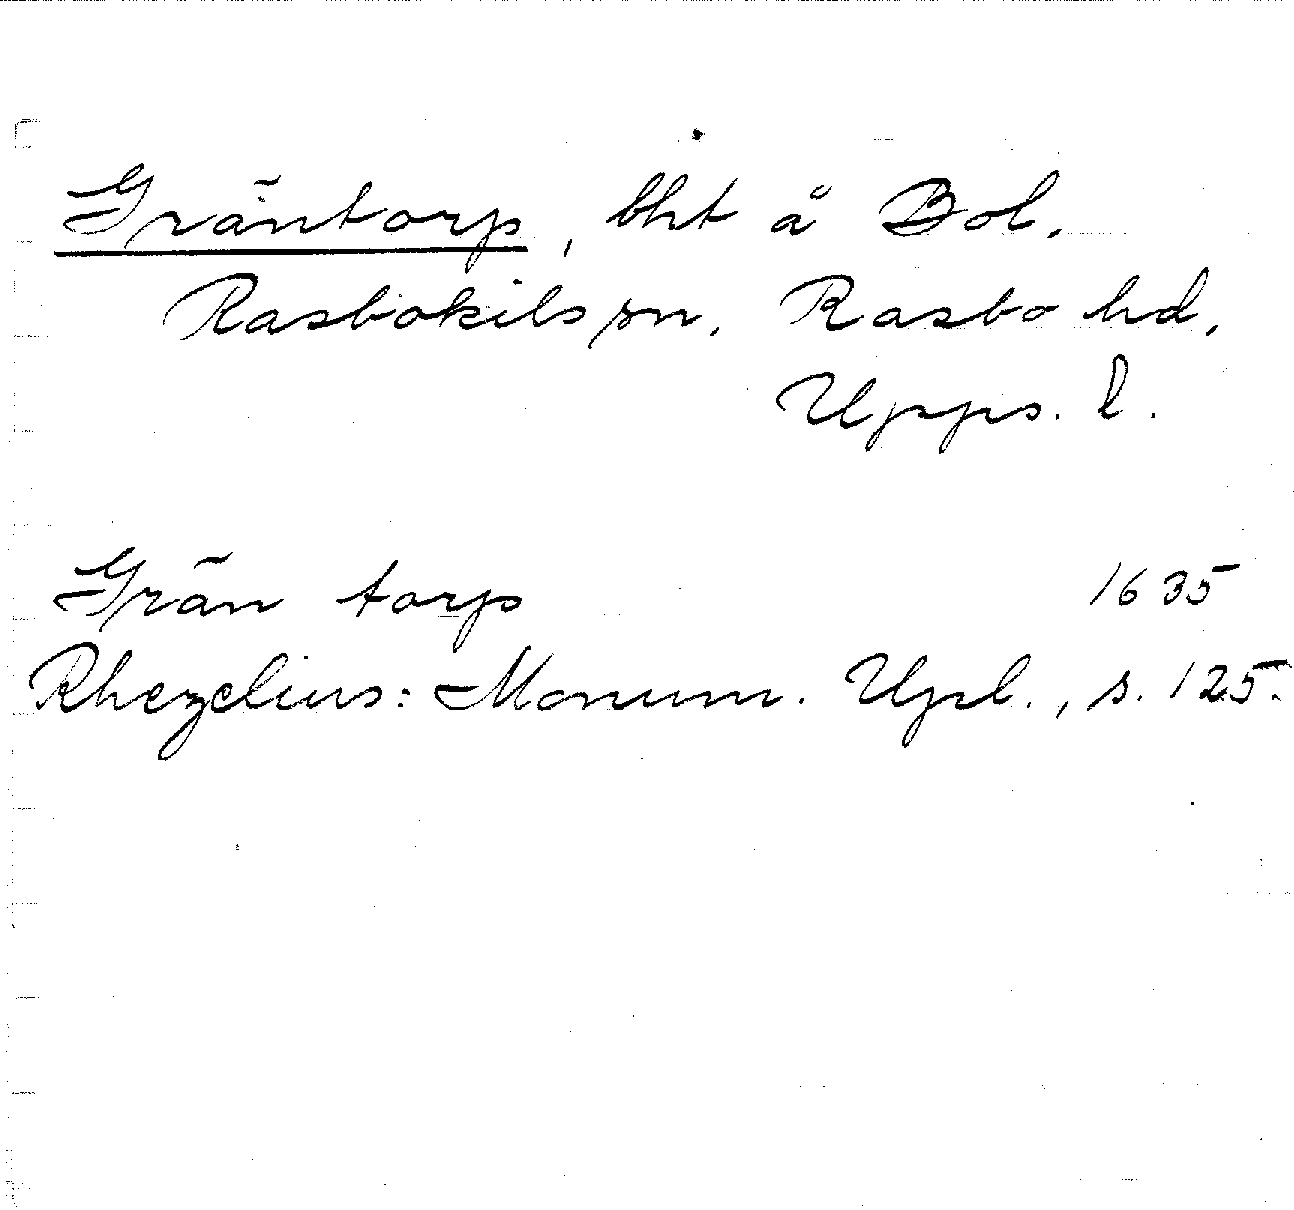 Gräntorp, bht å Bol.
Rasbokils sn, Rasbo hd,
Upps. l.
Grän torp 1635
Rhezelius: Monum. Upl., s. 125.